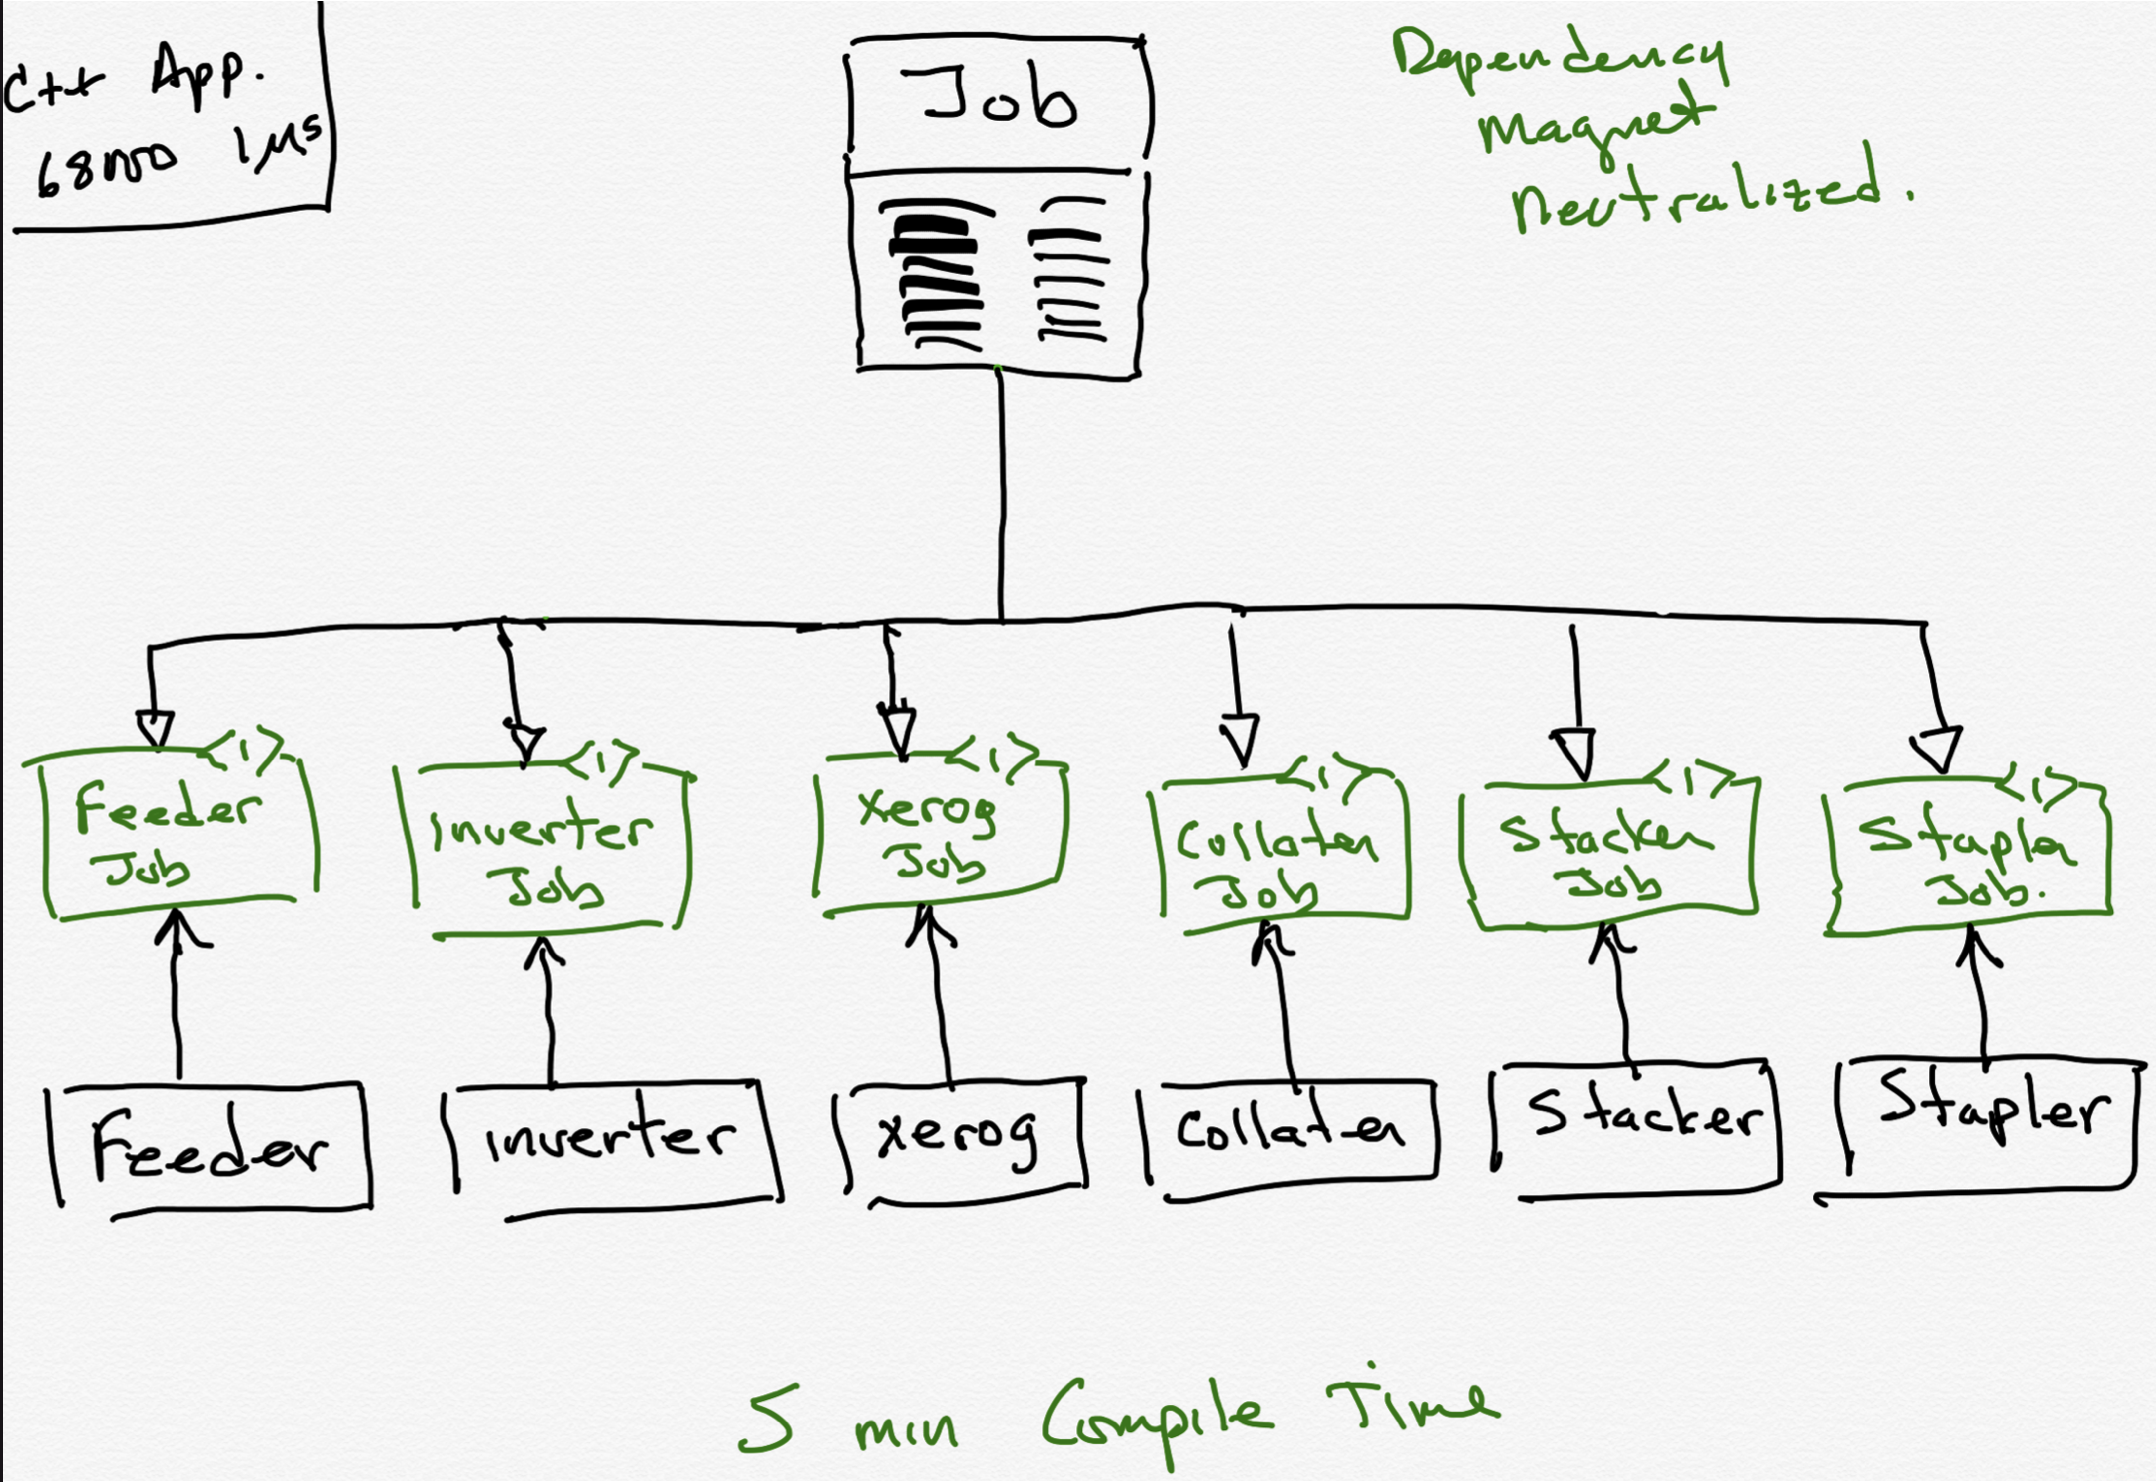 C++ App.
68000 1μs
Job
Dependency
Magnet
Neutralized.
<I>
Feeder
Job
<I>
inverter
Job
<I>
xerog
Job
<I>
Collater
Job
<I>
Stacker
Job
<I>
Stapler
Job.
Feeder
inverter
xerog
Collater
Stacker
Stapler
5 min Compile Time